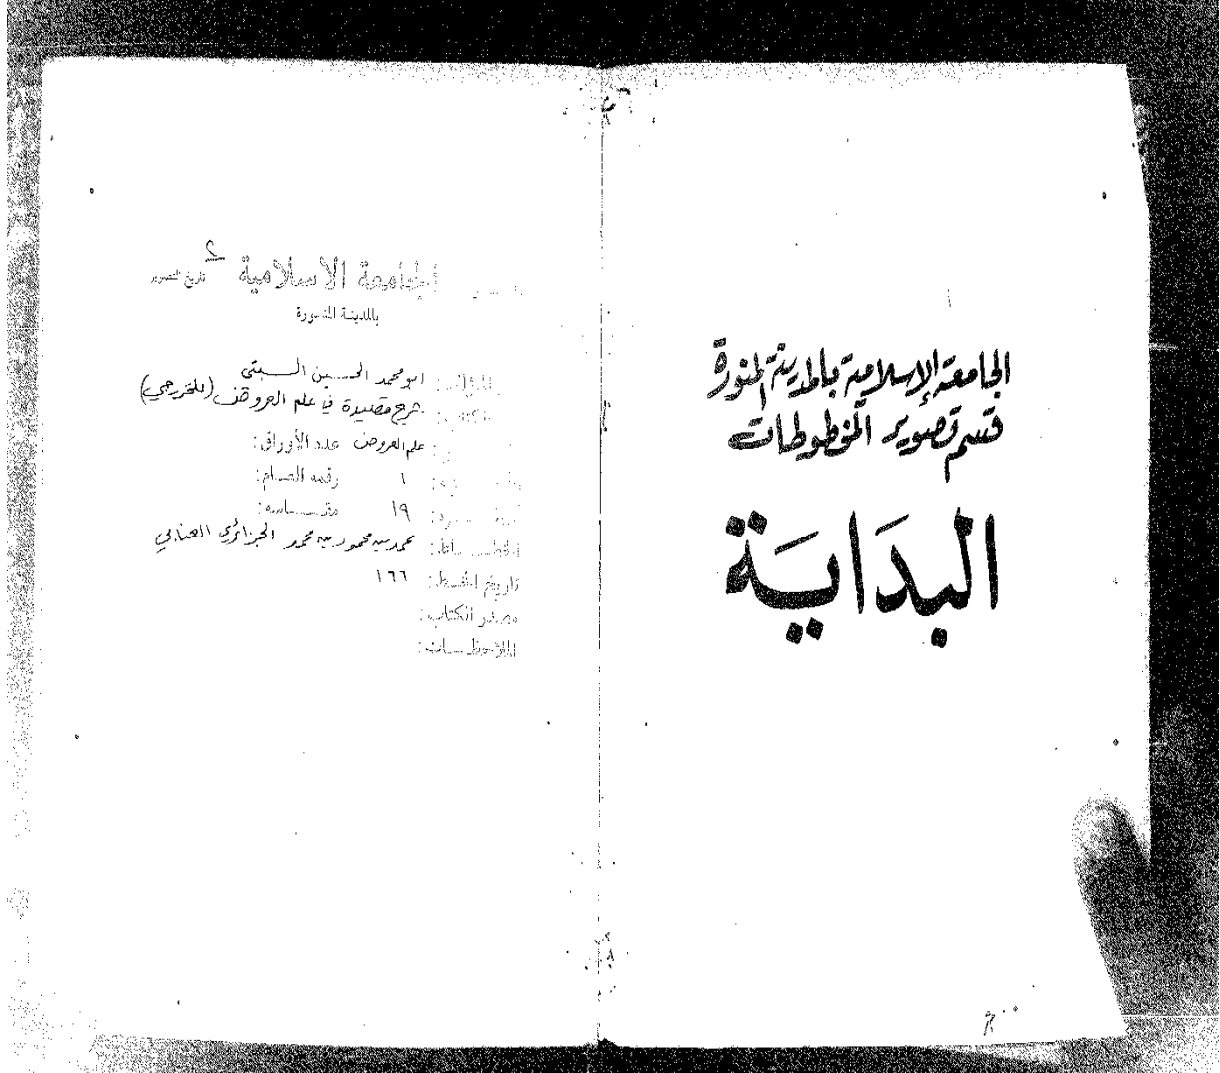 الجامعة الإسلامية بالمدينة المنورة
قسم تصوير المخطوطات
البداية
الجامعة الاسلامية
تاريخ التصوير
بالمدينة المنورة
المؤلف: ابو محمد الحسين السبتي
شرح قصيدة في علم العروض (للخزرجي)
علم العروض عدد الأوراق:
١ رقمه العام:
١٩ مقاسه:
محمد بن محمود بن محمد الجزائري العنابي
تاريخ النسخ: ١٦٦
مصدر الكتاب:
الملاحظات: